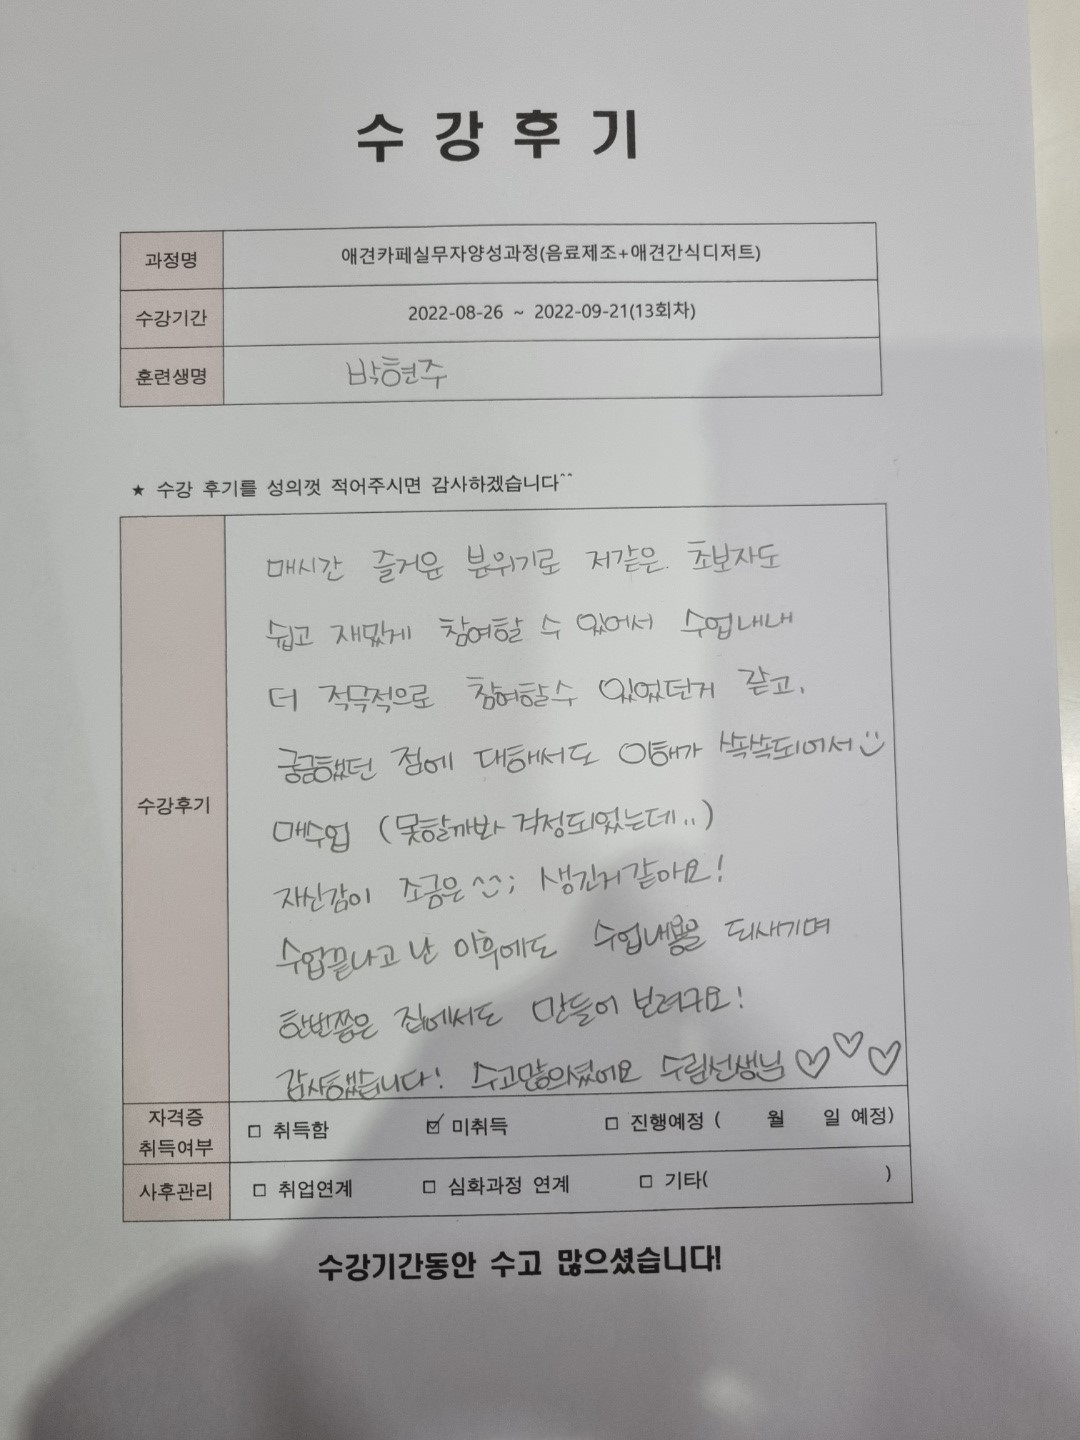 수강후기
과정명 애견카페실무자양성과정(음료제조+애견간식디저트)
수강기간 2022-08-26 ~ 2022-09-21(13회차)
훈련생명 박현주
★ 수강 후기를 성의껏 적어주시면 감사하겠습니다^^
수강후기
매시간 즐거운 분위기로 저같은 초보자도
쉽고 재밌게 참여할 수 있어서 수업내내
더 적극적으로 참여할수 있었던거 같고,
궁금했던 점에 대해서도 이해가 쏙쏙되어서
매수업 (못할까봐 걱정되었는데..)
자신감이 조금은^^; 생긴거같아요!
수업끝나고 난 이후에도 수업내용을 되새기며
한번쯤은 집에서도 만들어 보려구요!
감사했습니다! 수고많으셨어요 수림선생님♡♡♡
자격증 취득여부 □ 취득함 ☑ 미취득 □ 진행예정 ( 월 일 예정)
사후관리 □ 취업연계 □ 심화과정 연계 □ 기타( )
수강기간동안 수고 많으셨습니다!